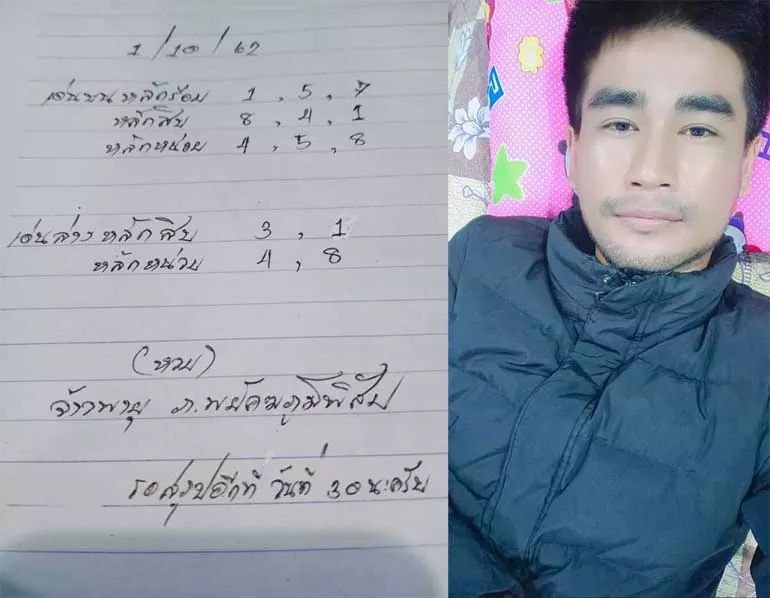 1/10/62
เด่นบน หลักร้อย 1, 5, 7
หลักสิบ 8, 4, 1
หลักหน่วย 4, 5, 8
เด่นล่าง หลักสิบ 3, 1
หลักหน่วย 4, 8
(หวย)
จ้าวพายุ ภ.พยัคฆภูมิพิสัย
รอสรุปอีกที วันที่ 30 นะครับ